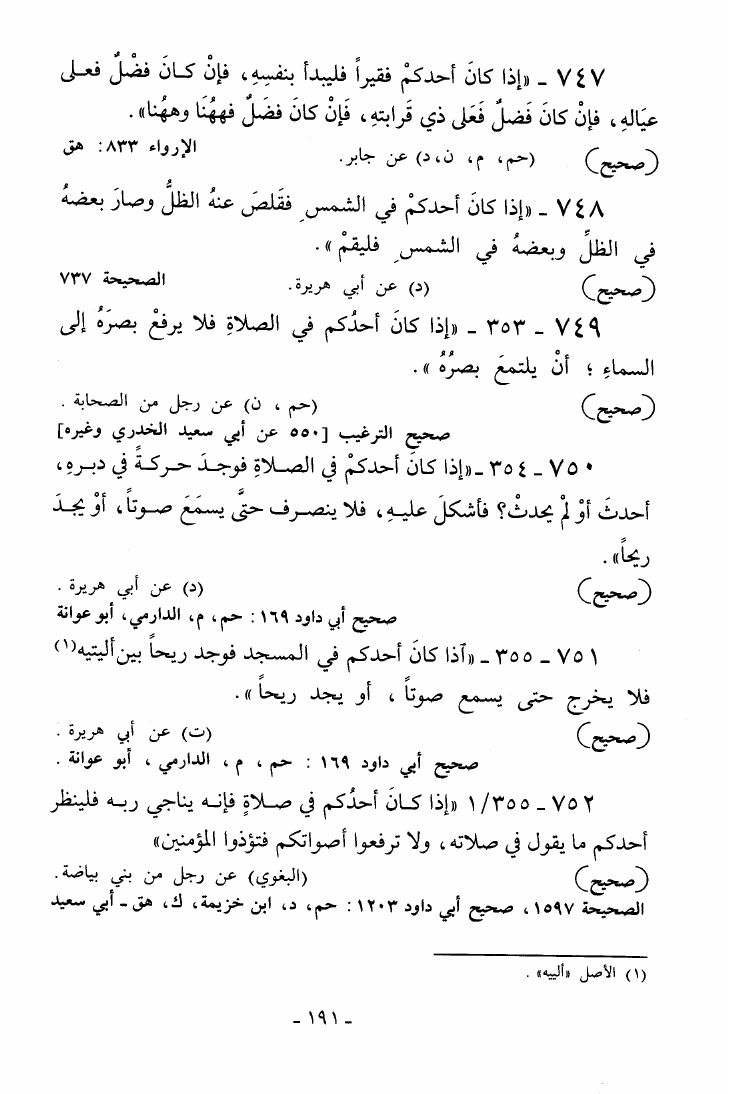 ٧٤٧ ـ «إذا كانَ أحدكمْ فقيراً فليبدأ بنفسِهِ، فإنْ كـانَ فضْلٌ فعـلى
عيَالهِ، فإنْ كان فَضلٌ فَعَلى ذي قَرابتهِ، فَإنْ كانَ فضَلٌ فههُنَا وههُنا».
(صحيح) (حم، م، ن،د) عن جابر. الإرواء ٨٣٣: هق
٧٤٨ ـ «إذا كانَ أحدكمْ في الشمسِ فقَلصَ عنهُ الظلُّ وصارَ بعضهُ
في الظلِّ وبعضهُ في الشمسِ فليقمْ».
(صحيح) (د) عن أبي هريرة. الصحيحة ٧٣٧
٧٤٩ ـ ٣٥٣ ـ «إذا كانَ أحدُكم في الصلاةِ فلا يرفعْ بصرَهُ إلى
السماءِ ؛ أنْ يلتمعَ بصرُهُ».
(صحيح) (حم ، ن) عن رجل من الصحابة .
صحيح الترغيب [٥٥٠ عن أبي سعيد الخدري وغيره]
٧٥٠ ـ ٣٥٤ ـ«إذا كانَ أحدكمْ في الصـلاةِ فوجـدَ حـركـةً في دبـرهِ،
أحدثَ أوْ لمْ يحدثْ؟ فأشكلَ عليـهِ، فلا ينصـرف حتَّى يسمَعَ صـوتاً، أوْ يجـدَ
ريحاً».
(صحيح) (د) عن أبي هريرة .
صحيح أبي داود ١٦٩: حم، م، الدارمي، أبو عوانة
٧٥١ ـ ٣٥٥ ـ «آذا كانَ أحدكم في المسجد فوجد ريحاً بين أليتيه(١)
فلا يخرج حتى يسمع صوتاً ، أو يجد ريحاً».
(صحيح) (ت) عن أبي هريرة .
صحيح أبي داود ١٦٩ : حم ، م ، الدارمي ، أبو عوانة .
٧٥٢ ـ ١/٣٥٥ «إذا كـانَ أحدُكم في صـلاةٍ فإنـه يناجي ربـه فلينظر
أحدكم ما يقول في صلاته، ولا ترفعوا أصواتكم فتؤذوا المؤمنين»
(صحيح) (البغوي) عن رجل من بني بياضة.
الصحيحة ١٥٩٧، صحيح أبي داود ١٢٠٣: حم، د، ابن خزيمة، ك، هق ـ أبي سعيد
(١) الأصل «ألييه» .
ـ ١٩١ ـ